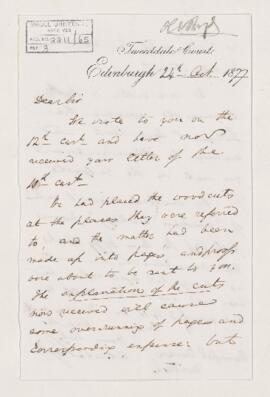 Tweeddale Court,
Edinburgh 24th Oct. 1877
Dear Sir
We wrote to you on the
12th curt and have now
received your letter of the
We had placed the woodcuts
at the places they were referred
to and the matter had been
made up into pages, and proofs
were about to be sent to you.
The explanation of the cuts
now received will cause
some overrunning of pages and
corresponding expense: but